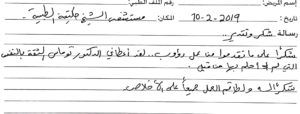 إسم المريض: رقم الملف الطبي:
التاريخ: 10-2-2019 المكان: مستشفى الشيخ خليفة الطبية
رسالة شكر وتقدير..
شكراً على ما تقدموا من عمل دؤوب. لقد أعطاني الدكتور توماس الثقة بالنفس
التي لم أحلم بها من قبل.
شكراً له ولطاقم العمل جميعاً على الأخلاص.